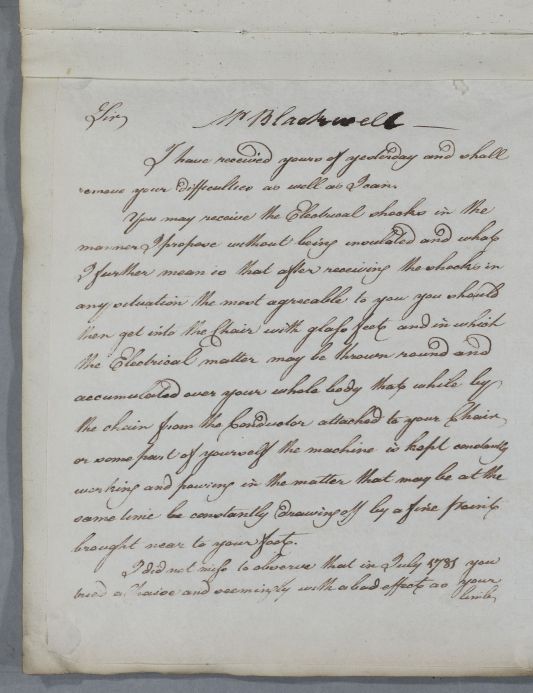 Sir,
Mr Blackwell
I have received yours of yesterday and shall
remove your difficulties as well as I can.
You may receive the Electrical shocks in the
manner I propose without being insulated and what
I further mean is that after receiving the shocks in
any situation the most agreeable to you you should
then get into the Chair with glass feet and in which
the Electrical matter may be thrown round and
accumulated over your whole body that while by
the chain from the Conductor attached to your Chair
or some part of yourself the machine is kept constantly
working and pouring in the matter that may be at the
same time be constantly drawing off by a fine point
brought near to your feet.
I did not miss to observe that in July 1781 you
tried a and seemingly with a bad effect as your
limbs